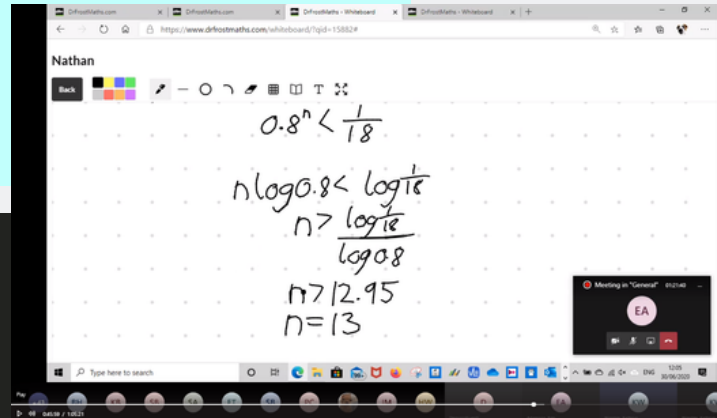 DrFrostMaths.com DrFrostMaths.com DrFrostMaths - Whiteboard DrFrostMaths - Whiteboard
https://www.drfrostmaths.com/whiteboard/?qid=15882#
Nathan
Back T
0.8ⁿ < 1/18
n log 0.8 < log 1/18
n > log 1/18 / log 0.8
n > 12.95
n = 13
Meeting in "General" 01:21:40
EA
Type here to search
ENG 12:05
30/06/2020
Play
RH KR SR SA ET SR PC IM HW D EA KW